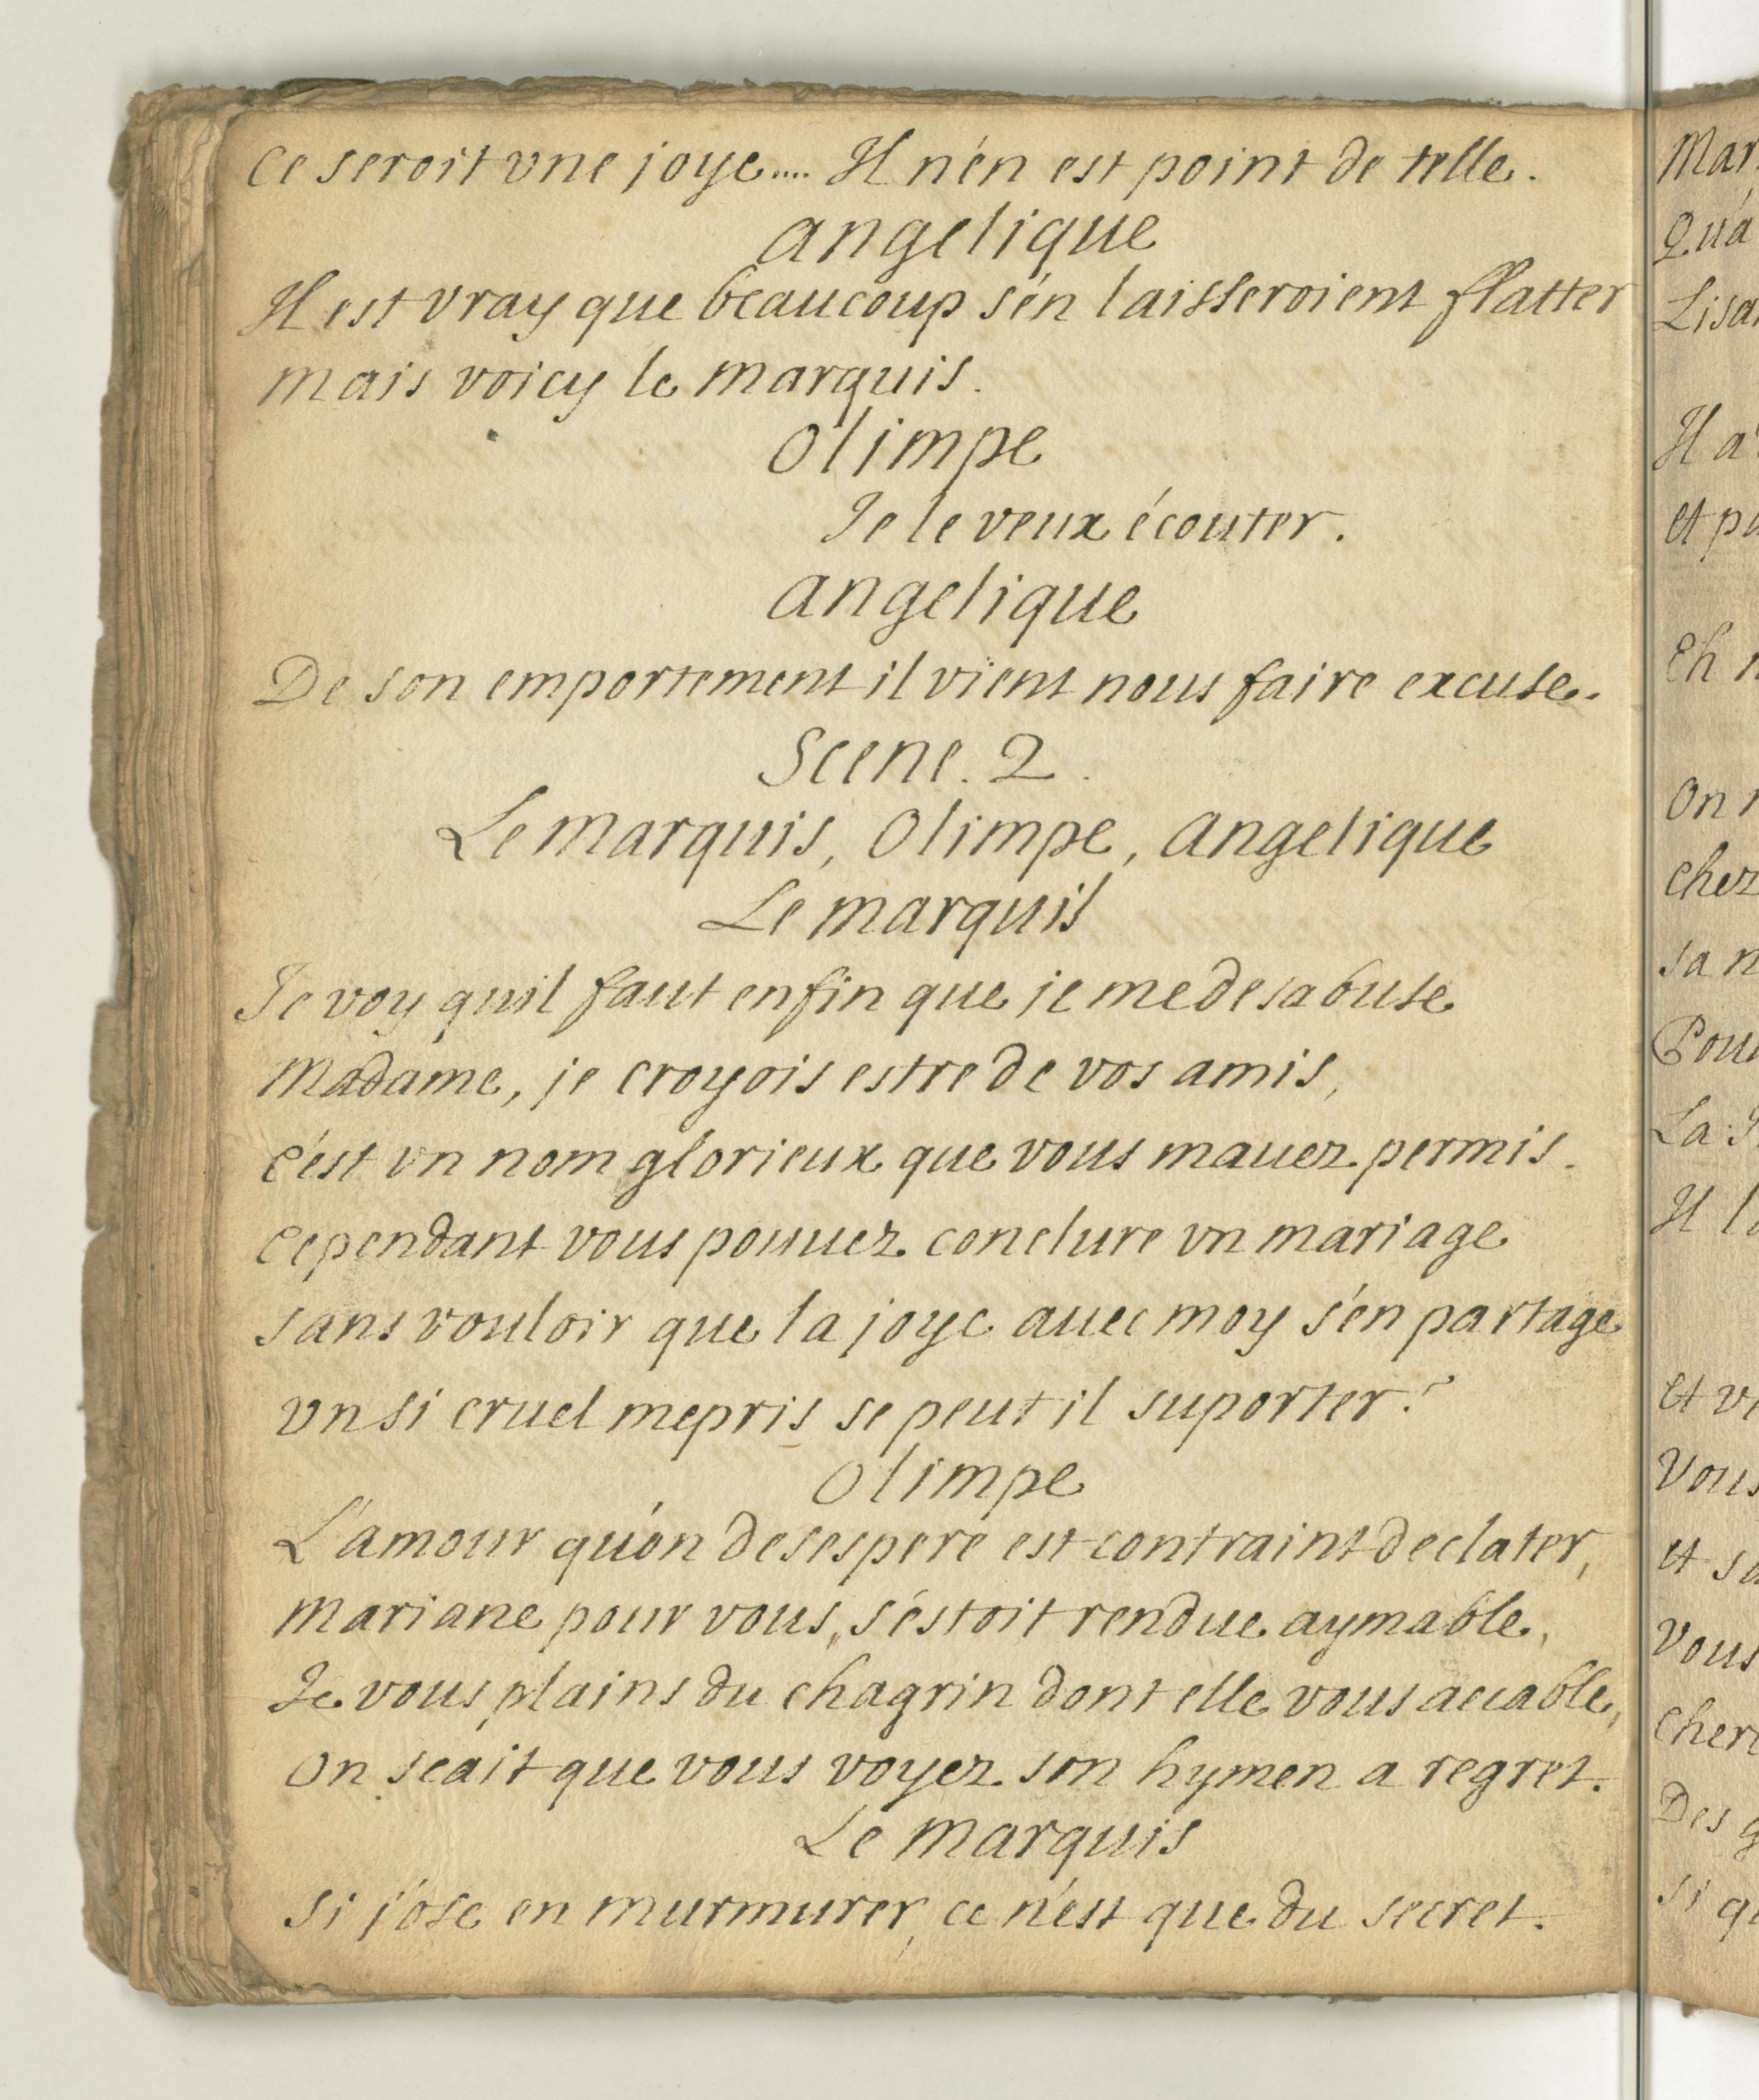 Ce seroit vne joye.... Il n'en est point de telle.
angelique
Il est vray que beaucoup s'en laisseroient flatter
mais voicy le marquis.
Olimpe
Je le veux écouter.
angelique
De son emportement il vient nous faire excuse.
Scene. 2.
Le marquis, Olimpe, angelique
Le marquis
Je voy quil faut enfin que je me desabuse
Madame, je croyois estre de vos amis,
C'est vn nom glorieux que vous mauez permis.
Cependant vous pouuez conclure vn mariage
sans vouloir que la joye auec moy s'en partage
vn si cruel mepris se peut il suporter?
Olimpe
L'amour qu'on desespere est contraint declater,
Mariane pour vous, s'estoit rendue aymable,
Je vous plains du chagrin dont elle vous accable,
On scait que vous voyez son hymen a regret.
Le marquis
Si j'ose en murmurer, ce n'est que du secret.
Mar
Qu'a
Lisa
Il a
et pa
Eh
On
chez
sa n
Pour
La
Il l
et v
Vous
et sa
Vous
cher
Des g
Si q